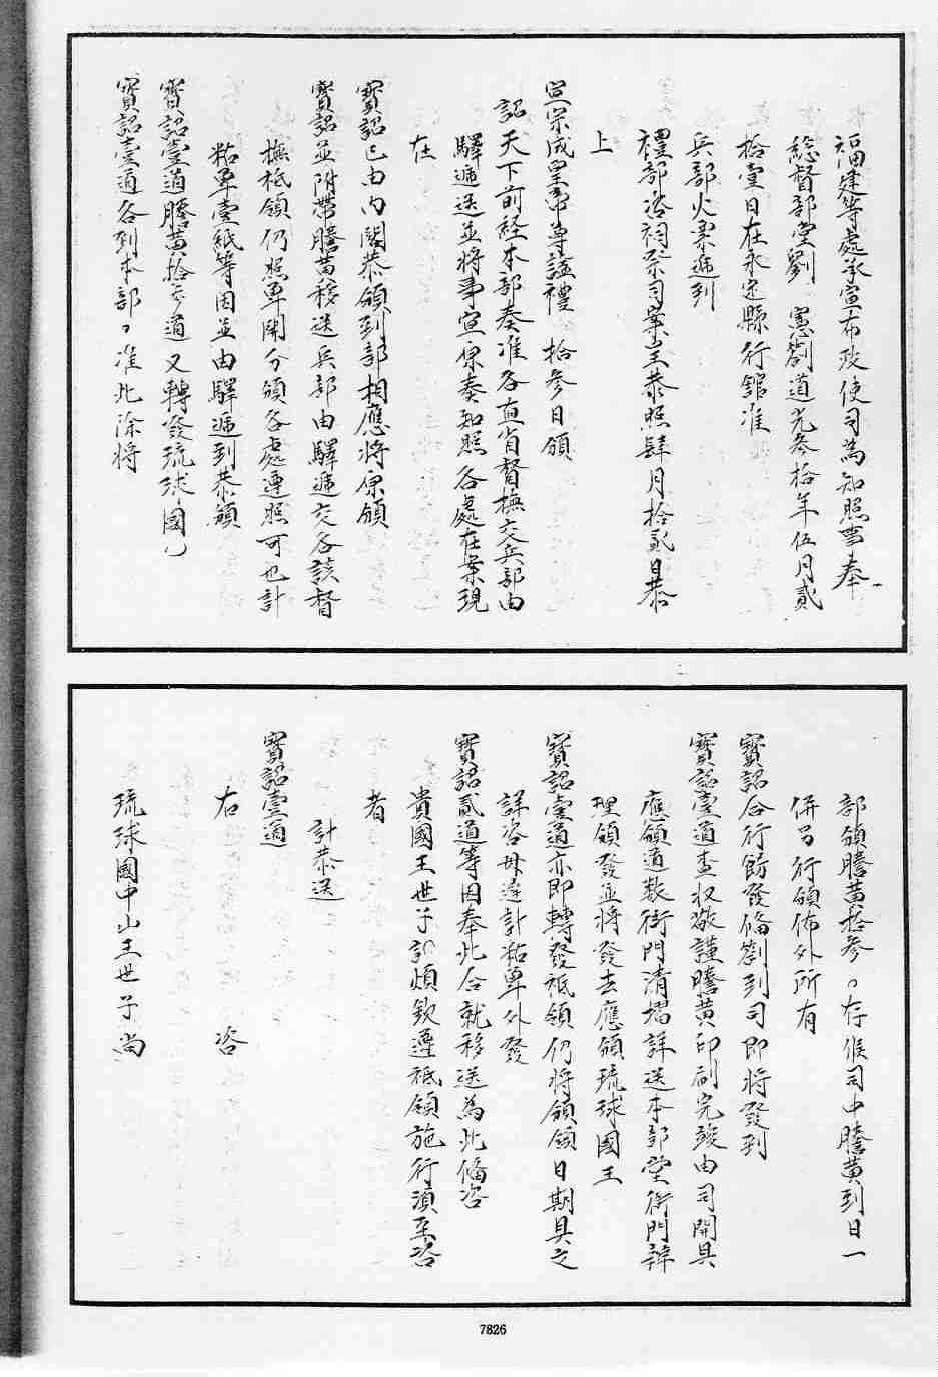 福建等處承宣布政使司為知照事奉
總督部堂劉　憲劄道光叁拾年伍月貳
拾壹日在永定縣行館准
兵部火票遞到
禮部咨祠祭司案呈恭照肆月拾貳日恭
上
宣宗成皇帝尊謚禮　拾參日頒
詔天下前經本部奏准各直省督撫交兵部由
驛遞送並將事宣原奏知照各處在案現
在
寶詔已由內閣恭領到部相應將原頒
寶詔並附帶謄黃移送兵部由驛遞交各該督
撫祗領仍照單開分頒各處遵照可也計
粘單壹紙等因並由驛遞到恭頒
寶詔壹道謄黃拾叁道又轉發琉球國
寶詔壹道各到本部々准此除將
部頒謄黃拾參々存候司中謄黃到日一
併另行頒佈外所有
寶詔合行飭發備劄到司即將發到
寶詔壹道查收敬謹謄黃印刷完竣由司開具
應領道數衙門清摺詳送本部堂衙門辦
理頒發並將發去應頒琉球國王
寶詔壹道亦即轉發祗領仍將頒領日期具文
詳咨毋違計粘單外發
寶詔貳道等因奉此合就移送為此備咨
貴國王世子　煩欽遵祗領施行須至咨
者
計恭送
寶詔壹道
右　咨
琉球國中山王世子尚
7826